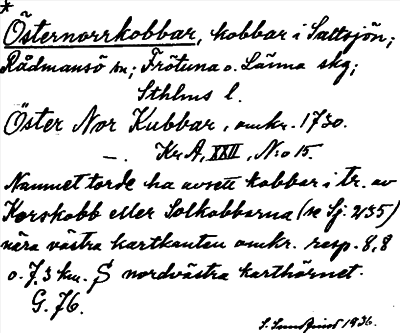 *
Östernorrkobbar, kobbar i Saltsjön;
Rådmansö sn; Frötuna o. Länna skg;
Sthlms l.
Öster Nor Kubbar, omkr. 1730.
—. Kr. A, XXII, N:o 15.
Namnet torde ha avsett kobbar i tr. av
Korskobb eller Solkobbarna (se Sj. 235)
nära västra kartkanten omkr. resp. 8,8
o. 7,3 km. S nordvästra karthörnet.
G. 76.
1936.